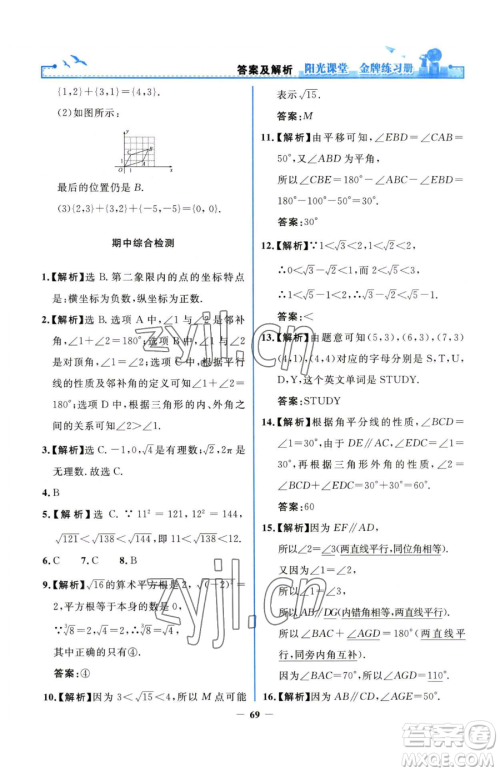 答案及解析 阳光课堂 金牌练习册
{1,2}+{3,1}={4,3}.
(2)如图所示:
最后的位置仍是 B.
(3){2,3}+{3,2}+{-5,-5}={0,0}.
期中综合检测
1.【解析】选 B. 第二象限内的点的坐标特点
是:横坐标为负数,纵坐标为正数.
2.【解析】选 B. 选项 A 中,∠1与∠2是邻补
角,∠1+∠2=180°;选项 B 中,∠1与∠2
是对顶角,∠1=∠2;选项 C 中,根据平行
线的性质及邻补角的定义可知∠1+∠2=
180°;选项 D 中,根据三角形的内、外角之
间的关系可知∠2>∠1.
3.【解析】选 C. -1,0,√4是有理数;√2,2π是
无理数.故选 C.
4. B
5.【解析】选 C. ∵11²=121,12²=144,
121<138<144,∴√121<√138<√144,即 11<√138<12.
6. C 7. C 8. B
9.【解析】√16的算术平方根是2,√(-2)²=
2,立方根等于本身的数是0和±1.
∵∛8=2,∴∛8=√4.综上所述,其中正
确的只有④.
答案:④
10.【解析】因为 3<√15<4,所以 M 点可能
表示√15.
答案:M
11.【解析】由平移可知,∠EBD=∠CAB=
50°,又因为∠ABD 为平角,
所以∠CBE=180°-∠ABC-∠EBD=
180°-100°-50°=30°.
答案:30°
12.【解析】∵1<√3<2,1<√2<2,
∴0<√3-1<1,-1<√2-2<0,
∴√3-1>√2-2.
答案:<
13.【解析】由题意可知(5,3),(6,3),(7,3)
(4,1),(4,4)的字母分别是 S,T,U,
D,Y,这个英文单词是 STUDY.
答案:STUDY
14.【解析】根据角平分线的性质,∠BCD
=∠1=30°,由于 DE∥AC,∠BCD=
30°,再根据三角形外角的性质,∠2=
∠1+∠BCD=30°+30°=60°.
答案:60
15.【解析】因为 EF∥AD,
所以∠2=∠3(两直线平行,同位角相等)
又因为∠1=∠2,
所以∠1=∠3,
所以 AB∥DG(内错角相等,两直线平行),
所以∠BAC+∠AGD=180°(两直线平
行,同旁内角互补).
因为∠BAC=70°,
所以∠AGD=110°.
16.【解析】因为 AB∥CD,∠AGE=50°,
69